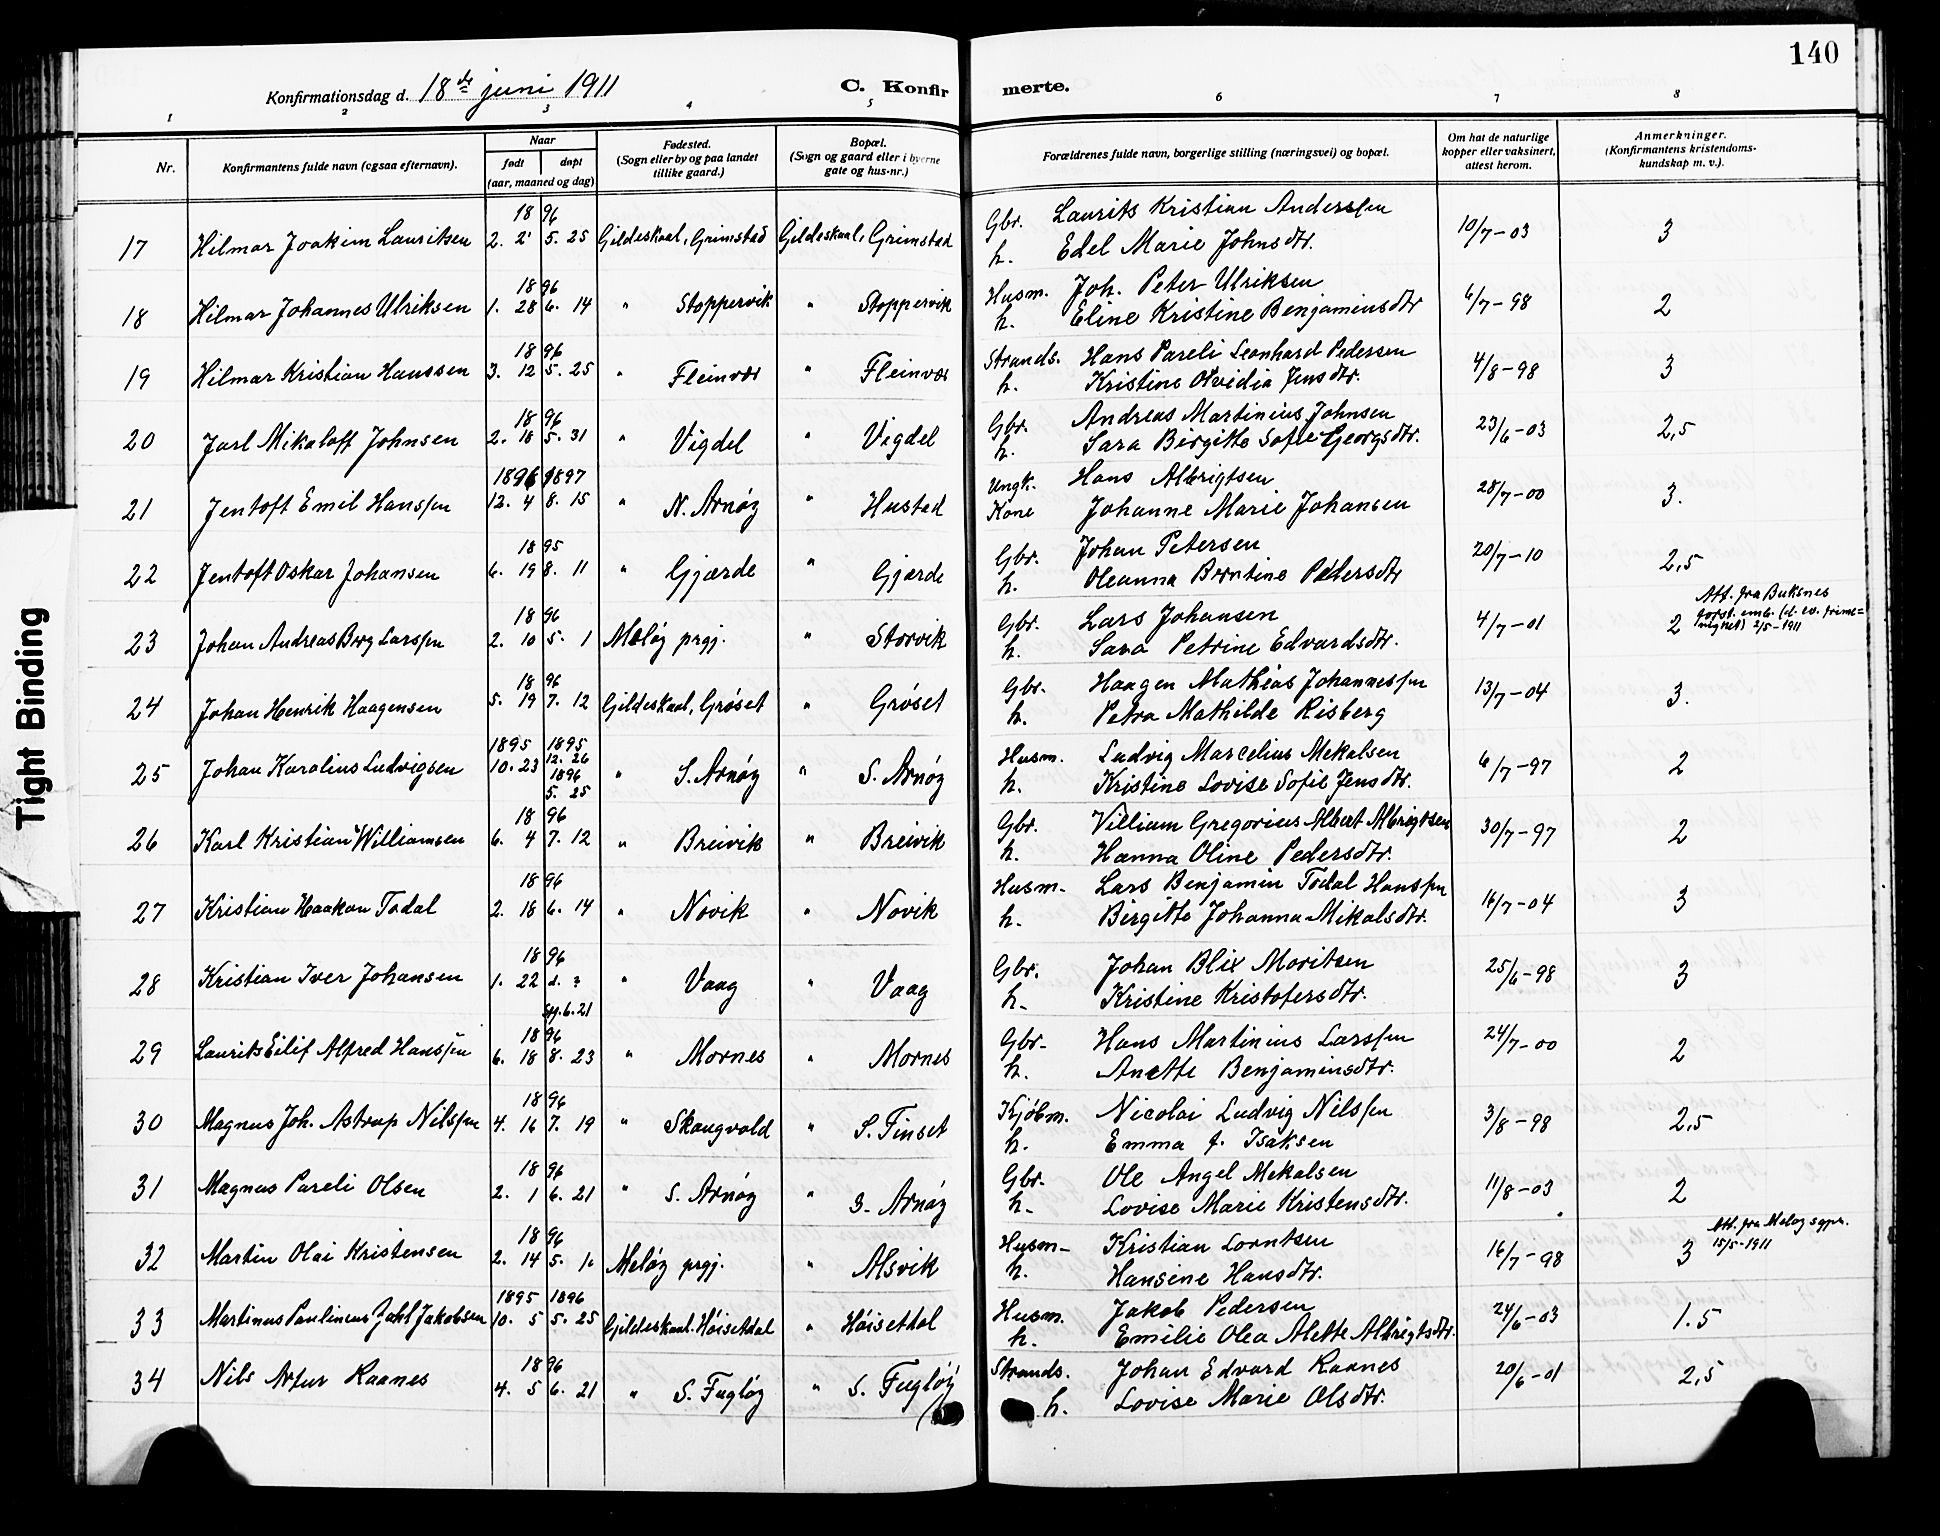 140
Konfirmationsdag d. 18de juni 1911
C. Konfirmerte.
1 2 3 4 5 6 7 8
Nr. Konfirmantens fulde navn (ogsaa efternavn). Naar født døpt (aar, maaned og dag) Fødested. (Sogn eller by og paa landet tillike gaard.) Bopæl. (Sogn og gaard eller i byerne gate og hus-nr.) Forældrenes fulde navn, borgerlige stilling (næringsvei) og bopæl. Om hat de naturlige kopper eller vaksinert, attest herom. Anmerkninger. (Konfirmantens kristendomskundskap m. v.).
17 Hilmar Joakim Lauritsen 1896 2. 2 5. 25 Gildeskaal, Grimstad Gildeskaal, Grimstad Gbr. Laurits Kristian Anderssen 10/7-03 3
h. Edel Marie Johnsdtr.
18 Hilmar Johannes Ulriksen 1896 1. 28 6. 14 " Stoppervik " Stoppervik Husm. Joh. Peter Ulriksen 6/7-98 2
h. Eline Kristine Benjaminsdtr
19 Hilmar Kristian Hanssen 1896 3. 12 5. 25 " Fleinvær " Fleinvær Strands. Hans Pareli Leonhard Pedersen 4/8-98 3
h. Kristine Olvidia Jensdtr.
20 Jarl Mikaloft Johnsen 1896 2. 18 5. 31 " Vigdel " Vigdel Gbr. Andreas Martinius Johnsen 23/6-03 2,5
h. Sara Birgitte Sofie Georgsdtr.
21 Jentoft Emil Hanssen 1896 1897 12. 4 8. 15 " N. Arnøy " Hustad Ungk. Hans Albrigtsen 28/7-00 3.
Kone Johanne Marie Johansen
22 Jentoft Oskar Johansen 1895 6. 19 8. 11 " Gjærde " Gjærde Gbr. Johan Petersen 20/7-10 2,5
h. Oleanna Berntine Pedersdtr
23 Johan Andreas Borg Larssen 1896 2. 10 5. 1 Meløy prgj. " Storvik Gbr. Lars Johansen 4/7-01 2 Att. fra Buksnes
h. Sara Petrine Edvardsdtr. 2/5-1911
24 Johan Henrik Haagensen 1896 5. 19 7. 12 Gildeskaal, Grøset " Grøset Gbr. Haagen Mathias Johannessen 13/7-04 3.
h. Petra Mathilde Risberg
25 Johan Karolius Ludvigsen 1895 10. 23 1895 12. 26 1896 5. 25 " S. Arnøy " S. Arnøy Husm. Ludvig Marcelius Mekalsen 6/7-97 2
h. Kristine Lovise Sofie Jensdtr.
26 Karl Kristian Williamsen 1896 6. 4 7. 12 " Breivik " Breivik Gbr. Villiam Gregorius Albert Albrigtsen 30/7-97 2
h. Hanna Oline Pedersdtr.
27 Kristian Haakon Todal 1896 2. 18 6. 14 " Novik " Novik Husm. Lars Benjamin Todal Hanssen 16/7-04 3
h. Birgitte Johanna Mikalsdtr.
28 Kristian Iver Johansen 1896 1. 22 2. ? 6. 21 " Vaag " Vaag Gbr. Johan Blix Moritsen 25/6-98 3
h. Kristine Kristofersdtr.
29 Laurits Eilif Alfred Hanssen 1896 6. 18 8. 23 " Mornes " Mornes Gbr. Hans Martinius Larssen 24/7-00 2
h. Anette Benjaminsdtr.
30 Magnus Joh. Astrup Nilssen 1896 4. 16 7. 19 " Skaugvold " S. Finset Kjøbm. Nicolai Ludvig Nilssen 3/8-98 2,5
h. Emma f. Isaksen
31 Magnus Pareli Olsen 1896 2. 1 6. 21 " S. Arnøy " S. Arnøy Gbr. Ole Angel Mekalsen 11/8-03 2
h. Lovise Marie Kristensdtr.
32 Martin Olai Kristensen 1896 2. 14 5. Meløy prgj. " Alsvik Husm. Kristian Lorntsen 16/7-98 3 Att. fra Meløy sgpr. 15/5-1911
h. Hansine Hansdtr.
33 Martinus Paulineus Dahl Jakobsen 1895 1896 10. 5 5. 25 Gildeskaal. Høisetdal " Høisetdal Husm. Jakob Pedersen 24/6-03 1.5
h. Emilie Olea Alette Albrigtsdtr.
34 Nils Artur Raanes 1896 4. 5 6. 21 " S. Fugløy " S. Fugløy Strands. Johan Edvard Raanes 20/6-01 2,5
h. Lovise Marie Olsdtr.
Tight Binding